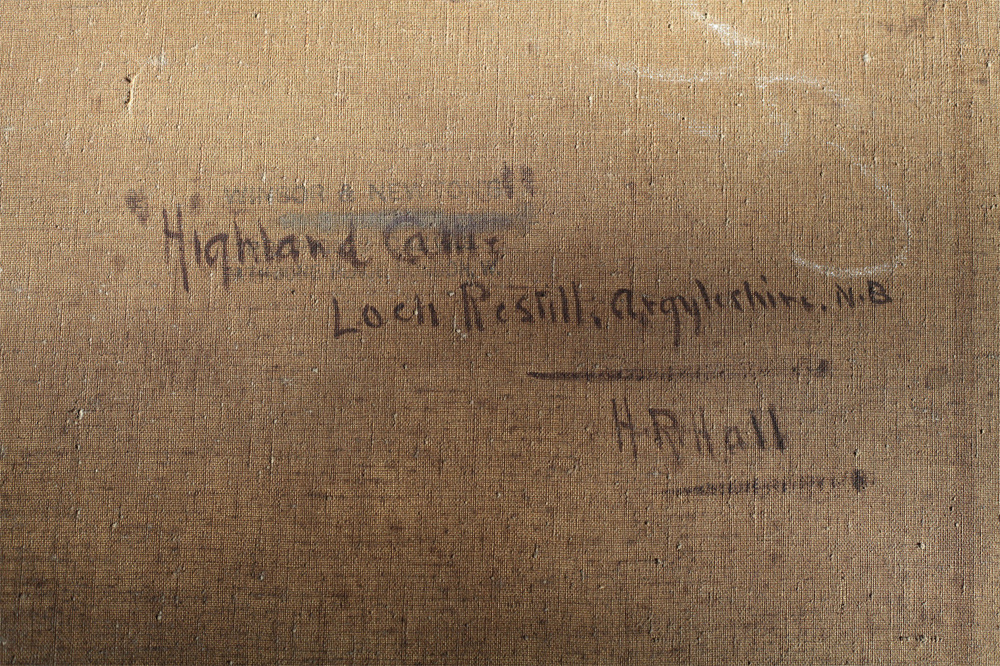 WINSOR & NEWTON
"Highland
Loch Restill, Argyleshire. N.B
H.R.Hall